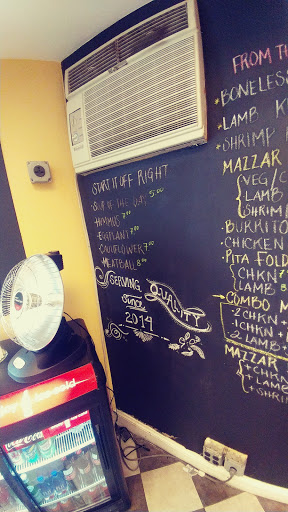 START IT OFF RIGHT
• SOUP OF THE DAY 5.00
• HUMMUS 7.00
• EGGPLANT 7.00
• CAULIFLOWER 7.50
• MEATBALL 8.00
SERVING
QUALITY
since
2014
FROM TH
• BONELESS
• LAMB K
• SHRIMP
MAZZAR
VEG/C
LAMB
SHRIM
BURRITO
• CHICKEN
PITA FOLD
CHKN 7
LAMB 8
COMBO M
- 2 CHKN +
- 1 CHKN +
- 2 LAMB +
MAZZAR
+ CHKN
+ LAMB
+ SHRI
ice-cold